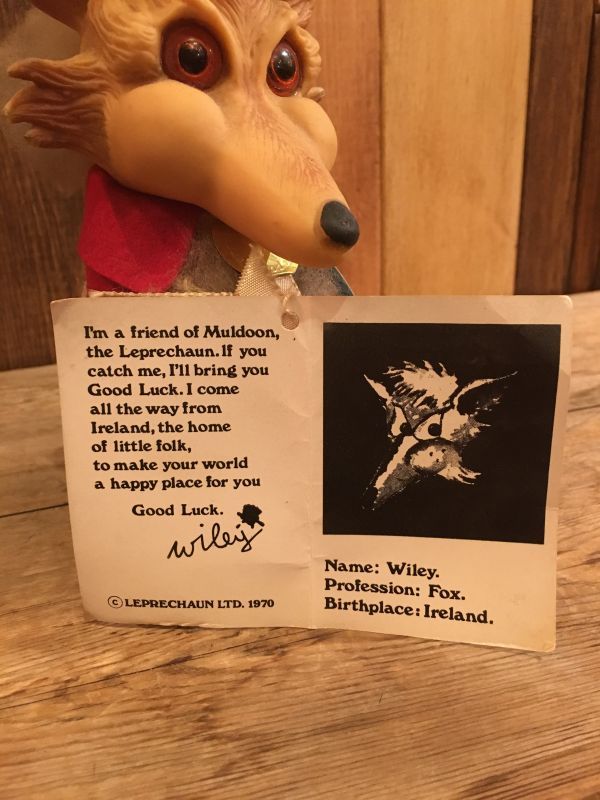 I'm a friend of Muldoon,
the Leprechaun. If you
catch me, I'll bring you
Good Luck. I come
all the way from
Ireland, the home
of little folk,
to make your world
a happy place for you
Good Luck.
wiley
© LEPRECHAUN LTD. 1970
Name: Wiley.
Profession: Fox.
Birthplace: Ireland.